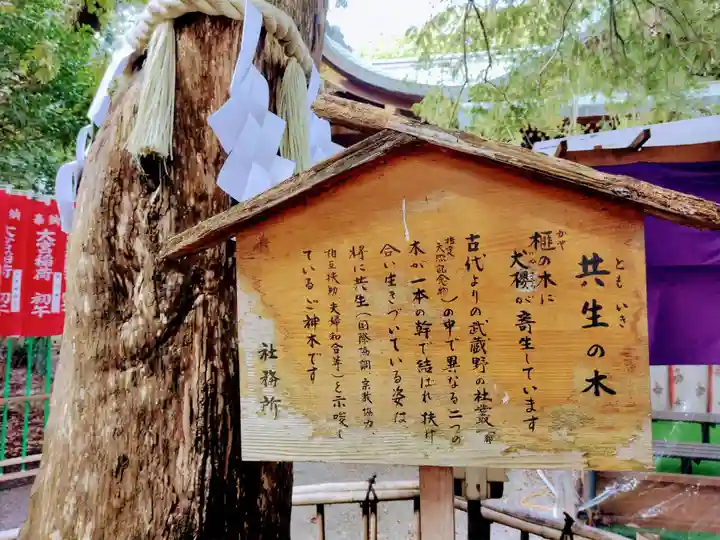 共生の木
ともいき
榧の木に
かや
犬櫻が寄生しています
古代よりの武蔵野の社叢(都
指定
天然記念物)の中で異なる二つの
木が一本の幹で結ばれ扶け
合い生きづいている姿は
将に共生(国際協調、宗教協力、
相互扶助、夫婦和合等)を示唆し
ているご神木です
社務所
大宮稲荷 初午
大宮稲荷 初午